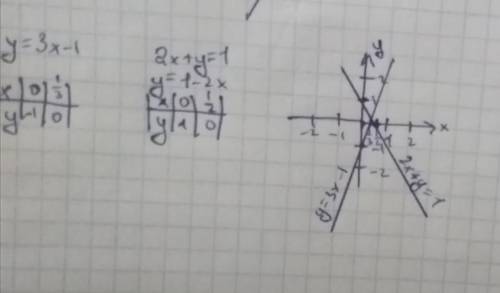 y=3x-1
x | 0 | 1/3
y | -1 | 0
2x+y=1
y=1-2x
x | 0 | 1/2
y | 1 | 0
y
1
-2 -1 1 2 x
-2
y=3x-1
2x+y=1